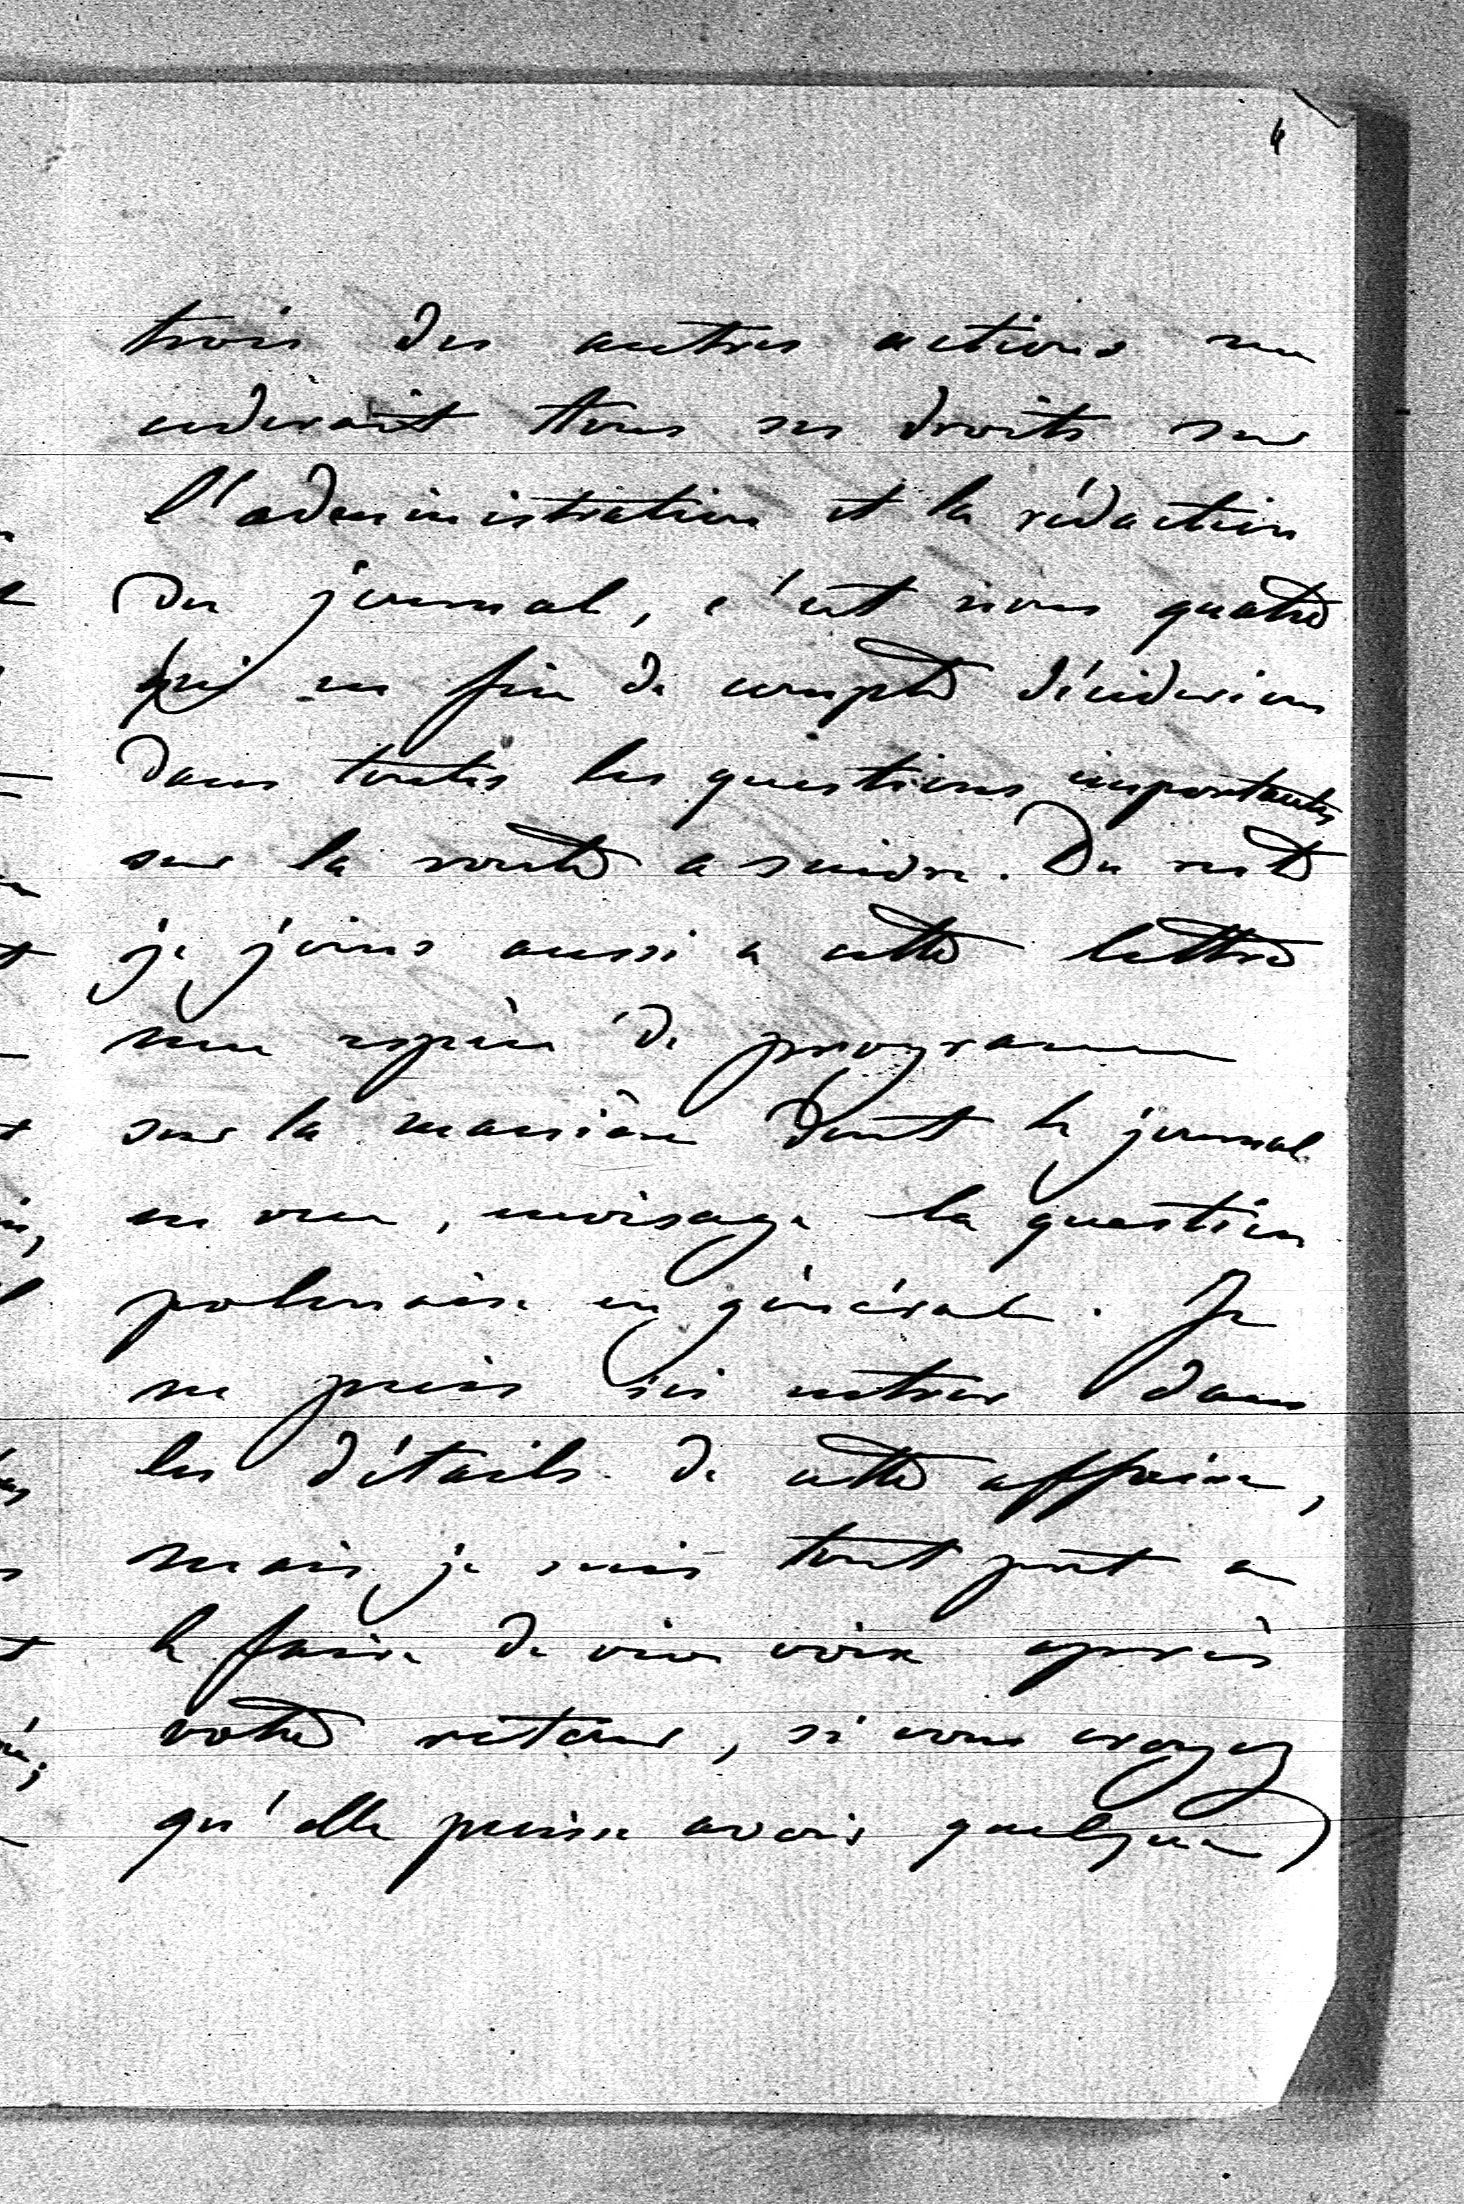 4
trois des autres actions me
cederait tous ses droits sur
l'administration et la rédaction
du journal, c'est nous quatre
qui en fin de compte déciderions
dans toutes les questions importantes
sur la route a suivre. Du reste
je joins aussi a cette lettre
une espèce de programme
sur la manière dont le journal
en vue, envisage la question
polonaise en général. Je
ne puis ici entrer dans
les détails de cette affaire,
mais je suis tout prêt a
le faire de vive voix après
votre retour, si vous croyez
qu'elle puisse avoir quelque